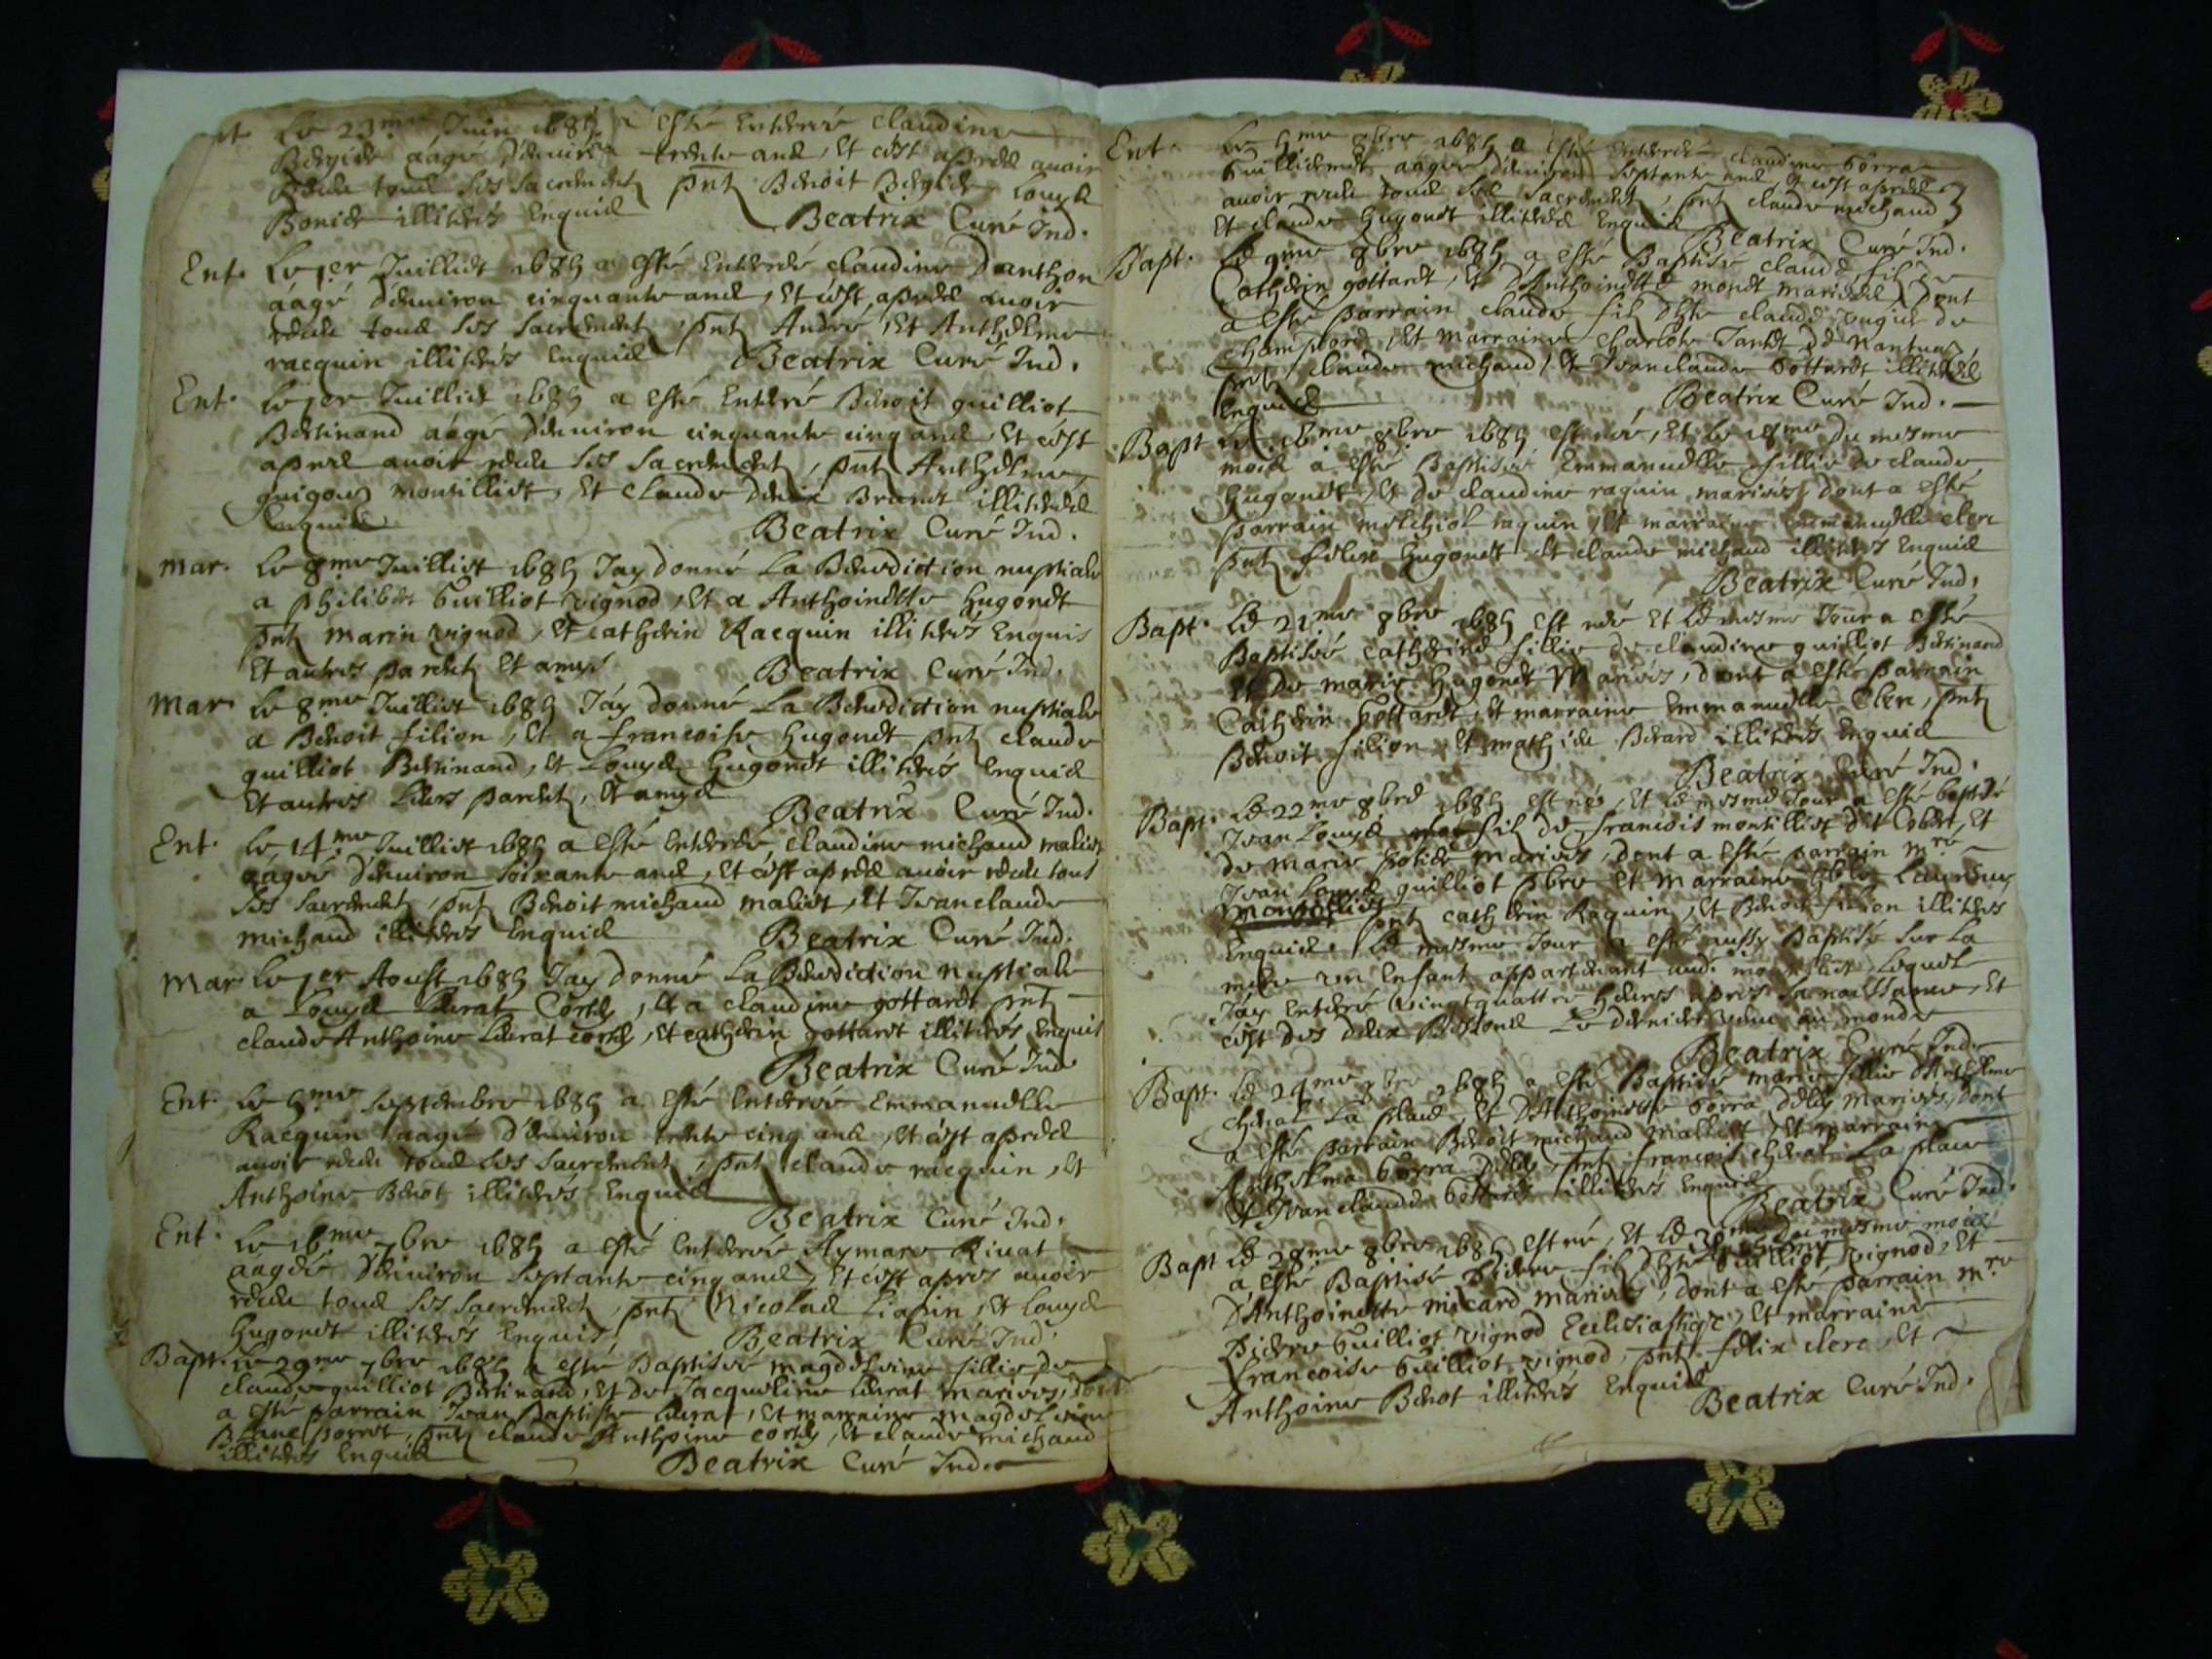 Le 23me Juin 1685 a esté enterrée claudine
aagé d'environ trente ans, Et c'est apres avoir
receu tous ses sacrements pnts Benoit Louys
Bonier illiteres Enquis Beatrix Curé Ind.
Ent. Le 1er Juilliet 1685 a esté Enterrée claudine Danthon
aagé d'environ cinquante ans, Et c'est apres avoir
receu tous ses sacrements pnts André, Et Anthelme
racquin illiterés Enquis Beatrix Curé Ind.
Ent. Le 1er Juilliet 1685 a esté Enterré Benoit guilliot
Bertinand aagé d'environ cinquante cinq ans, Et c'est
apres avoir receu ses sacrements, pnts Anthelme
guigou montilliet, Et Claude Brunet illiteres
Enquis Beatrix Curé Ind.
Mar. Le 8me Juilliet 1685 Jay donné La Benediction nuptiale
a philibert Guilliot vignod, Et a Anthoinette Hugonet
pnts marin vignod, Et catherin Racquin illiteres Enquis
Et autres parents Et amys Beatrix Curé Ind.
Mar. Le 8me Juilliet 1685 Jay donné La Benediction nuptiale
a Benoit filion, Et a francoise Hugonet pnts claude
guilliot Bertinand, Et Louys Hugonet illiterés Enquis
Et autres Leurs parents, Et amys Beatrix Curé Ind.
Ent. Le 14me Juilliet 1685 a esté enterrée claudine michaud maliet
aagée d'environ soixante ans, Et c'est apres avoir receu tous
ses sacrements, pnts Benoit michaud maliet, Et Jean claude
michaud illiteres Enquis Beatrix Curé Ind.
Mar. Le 1er Aoust 1685 Jay donné La Benediction nuptiale
a Louys Levrat Cortey, Et a claudine gottardt pnts
claude Anthoine Levrat cortey, Et catherin gottardt illiterés Enquis
Beatrix Curé Ind
Ent. Le 5me septembre 1685 a esté enterrée Emmanuelle
Racquin aagé d'environ trente cinq ans, Et c'est apres
avoir receu tous ses sacrements, pnts claude racquin, Et
Anthoine Benot illiterés Enquis
Beatrix Curé Ind.
Ent. Le 16me 7bre 1685 a esté enterrée Aymare Rivat
aagée d'environ septante cinq ans, Et c'est apres avoir
receu tous ses sacrements, pnts Nicolas Liarin, Et Louys
Hugonet illiterés Enquis Beatrix Curé Ind.
Bapt. Le 29me 7bre 1685 a esté Baptisée magdeleine fillie de
claude guilliot Bertinand, Et de Jacqueline Levrat mariees, dont
a esté parrain Jean Baptiste Levrat, Et marraine magdeleine
perret, pnts claude Anthoine cortey, Et claude michaud
illiteres Enquis Beatrix Curé Ind.
Ent. Le 5me 8bre 1685 a esté enterrée claudine borra
Guilliermet aagée d'environ septante ans Et c'est apres
avoir receu tous ses sacrements, pnts claude michaud 3
Et claude Hugonet illiteres Enquis
Beatrix Curé Ind.
Bapt. Le 9me 8bre 1685 a esté Baptisé claude fils de
Catherin gottardt, Et d'Anthoinette monet mariees, Dont
a esté parrain claude fils d'hte claude de
champfrond, Et marraine charlote Jantet de Nantua,
pnts claude michaud, Et Jean claude Gottardt illiteres
Enquis Beatrix Curé Ind.
Bapt Le 16me 8bre 1685 est née, Et le 18me du mesme
mois a esté Baptisée Emmanuelle fillie de claude
Hugonet, Et de claudine raquin mariees, dont a esté
parrain melchiol raquin, Et marraine emmanuelle clerc
pnts felix Hugonet, Et claude michaud illiteres Enquis
Beatrix Curé Ind.
Bapt. Le 21me 8bre 1685 est née Et Le mesme Jour a esté
Baptisée catherine fillie de claudine guilliot Bertinand
Et de marie Hugonet Mariees, dont a esté parrain
Catherin Gottardt, Et marraine Emmanuelle Clerc, pnts
Benoit filion, Et mathieu Benard illiterés Enquis
Beatrix Curé Ind.
Bapt. Le 22me 8bre 1685 est né, Et Le mesme Jour a esté baptisé
Jean Louys fils de francois montilliet dit Et
de marie mariees, dont a esté parrain mre
Jean Louys guilliot pbre Et marraine hble Laurence
montilliet pnts catherin Raquin, Et Benoit filion illiteres
Enquis. Le mesme Jour a esté aussy Baptisé sur La
un Enfant appartenant audt montilliet, Lequel
Jay Enterré vingtquattre heures apres sa naissance, Et
c'est des deux Bessons Le dernier venu au monde
Beatrix Curé Ind.
Bapt. Le 24me 8bre 1685 a esté Baptisée marie fillie d'Anthelme
La plane, Et d'Anthoinette borra mariees, dont
a esté parrain Benoit michaud malliet, Et marraine
Anthelma borra, pnts francois La plane
Et Jean claude Gottardt illiterés Enquis
Beatrix Curé Ind.
Bapt Le 28me 8bre 1685 est né, Et Le du mesme mois
a esté Baptisé Pierre fils d'hte Anthelme Guilliot vignod, Et
d'Anthoinette micard mariees, dont a esté parrain mre
Pierre Guilliot vignod Ecclesiastiqe, Et marraine
francoise Guilliot vignod, pnts felix clerc, Et
Anthoine Benot illiterés Enquis
Beatrix Curé Ind.